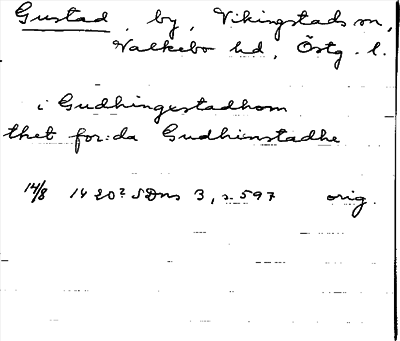 Gustad, by, Vikingstads sn,
Valkebo hd, Östg. l.
i Gudhingestadhom
thet for:da Gudhinstadhe
14/8 1420? SDns 3, s. 597 orig.